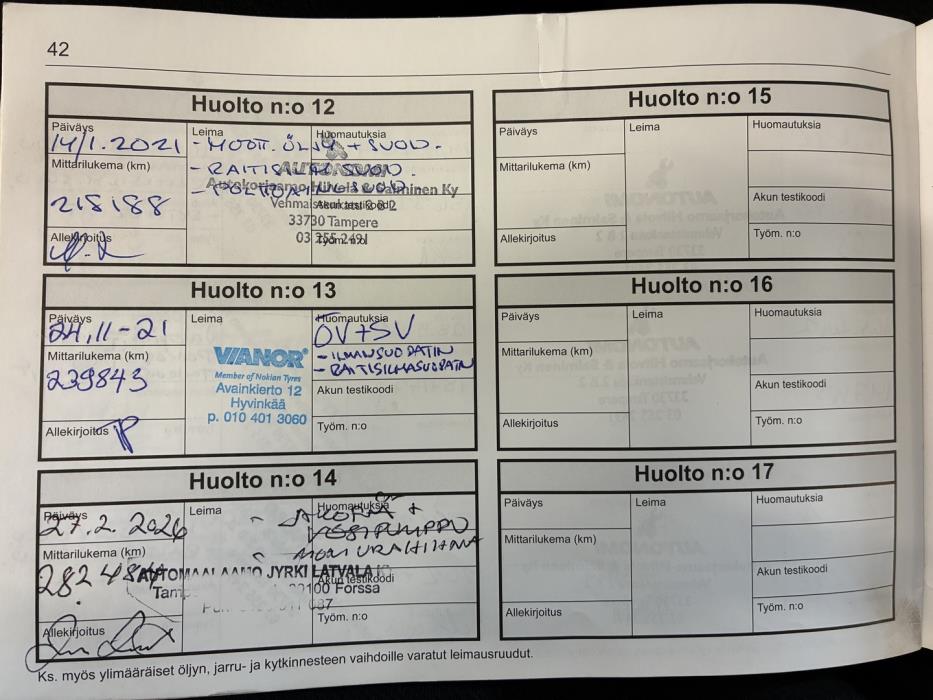 42
Huolto n:o 12
Päiväys
14/1.2021
Mittarilukema (km)
218188
Allekirjoitus
Leima
Huomautuksia
- MOOT. ÖLJY + SUOD.
- RAITISILMASUOD.
- POLTTOAINESUOD.
AUTONOMI
Autokorjaamo Hihvola & Salminen Ky
Vehmaistenkatu 8 B 2
Akun testikoodi
33730 Tampere
03 255 2491
Työm. n:o
Huolto n:o 13
Päiväys
24.11-21
Mittarilukema (km)
239843
Allekirjoitus
Leima
VIANOR
Member of Nokian Tyres
Avainkierto 12
Hyvinkää
p. 010 401 3060
Huomautuksia
ÖV+SV
- ILMANSUODATIN
- RAITISILMASUODATIN
Akun testikoodi
Työm. n:o
Huolto n:o 14
Päiväys
27.2.2026
Mittarilukema (km)
Allekirjoitus
Leima
Huomautuksia
- JAKOPÄÄ +
VESIPUMPPU
- MONIURAHIHNA
AUTOMAALAAMO JYRKI LATVALA
Akun testikoodi
Forssa
Työm. n:o
Huolto n:o 15
Päiväys
Mittarilukema (km)
Allekirjoitus
Leima
Huomautuksia
Akun testikoodi
Työm. n:o
Huolto n:o 16
Päiväys
Mittarilukema (km)
Allekirjoitus
Leima
Huomautuksia
Akun testikoodi
Työm. n:o
Huolto n:o 17
Päiväys
Mittarilukema (km)
Allekirjoitus
Leima
Huomautuksia
Akun testikoodi
Työm. n:o
Ks. myös ylimääräiset öljyn, jarru- ja kytkinnesteen vaihdoille varatut leimausruudut.